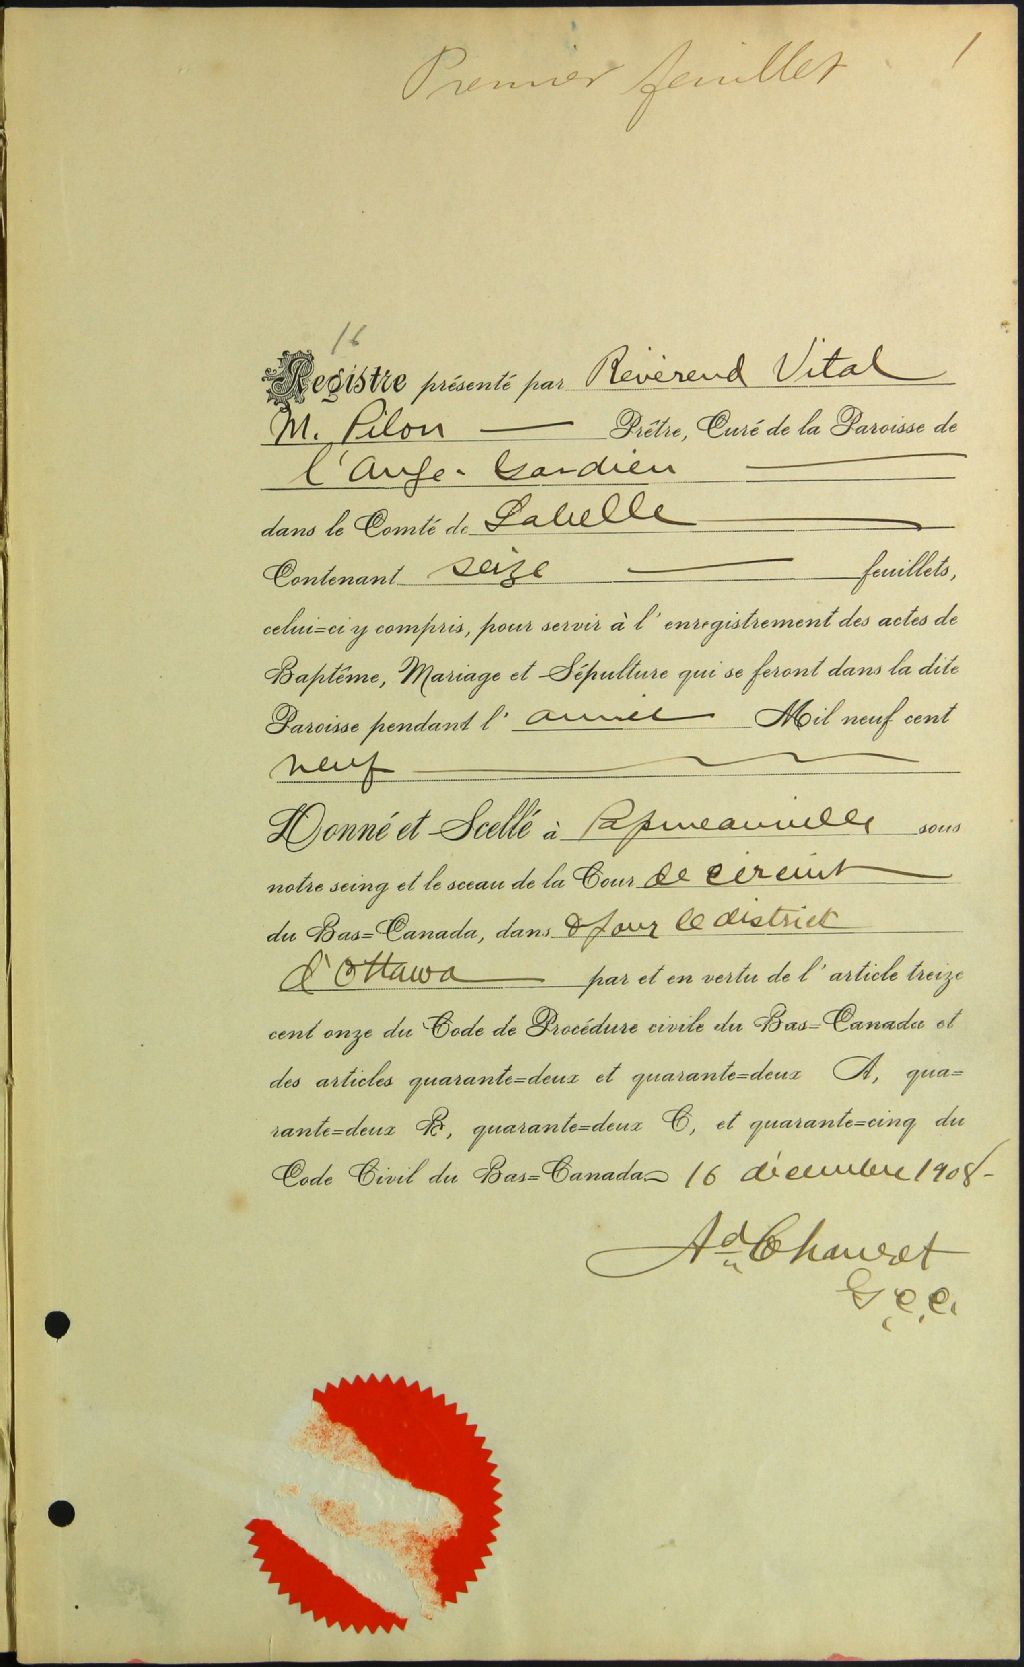 Premier feuillet 1
16
Registre présenté par Révérend Vital
M. Pilon Prêtre, Curé de la Paroisse de
l'Ange-Gardien
dans le Comté de Labelle
Contenant seize feuillets,
celui=ci y compris, pour servir à l'enregistrement des actes de
Baptême, Mariage et Sépulture qui se feront dans la dite
Paroisse pendant l'année Mil neuf cent
neuf
Donné et Scellé à Papineauville sous
notre seing et le sceau de la Cour de circuit
du Bas=Canada, dans & pour le district
d'Ottawa par et en vertu de l'article treize
cent onze du Code de Procédure civile du Bas=Canada et
des articles quarante=deux et quarante=deux A, qua=
rante=deux B, quarante=deux C, et quarante=cinq du
Code Civil du Bas=Canada 16 décembre 1908-
Ad Chauret
G.C.C.